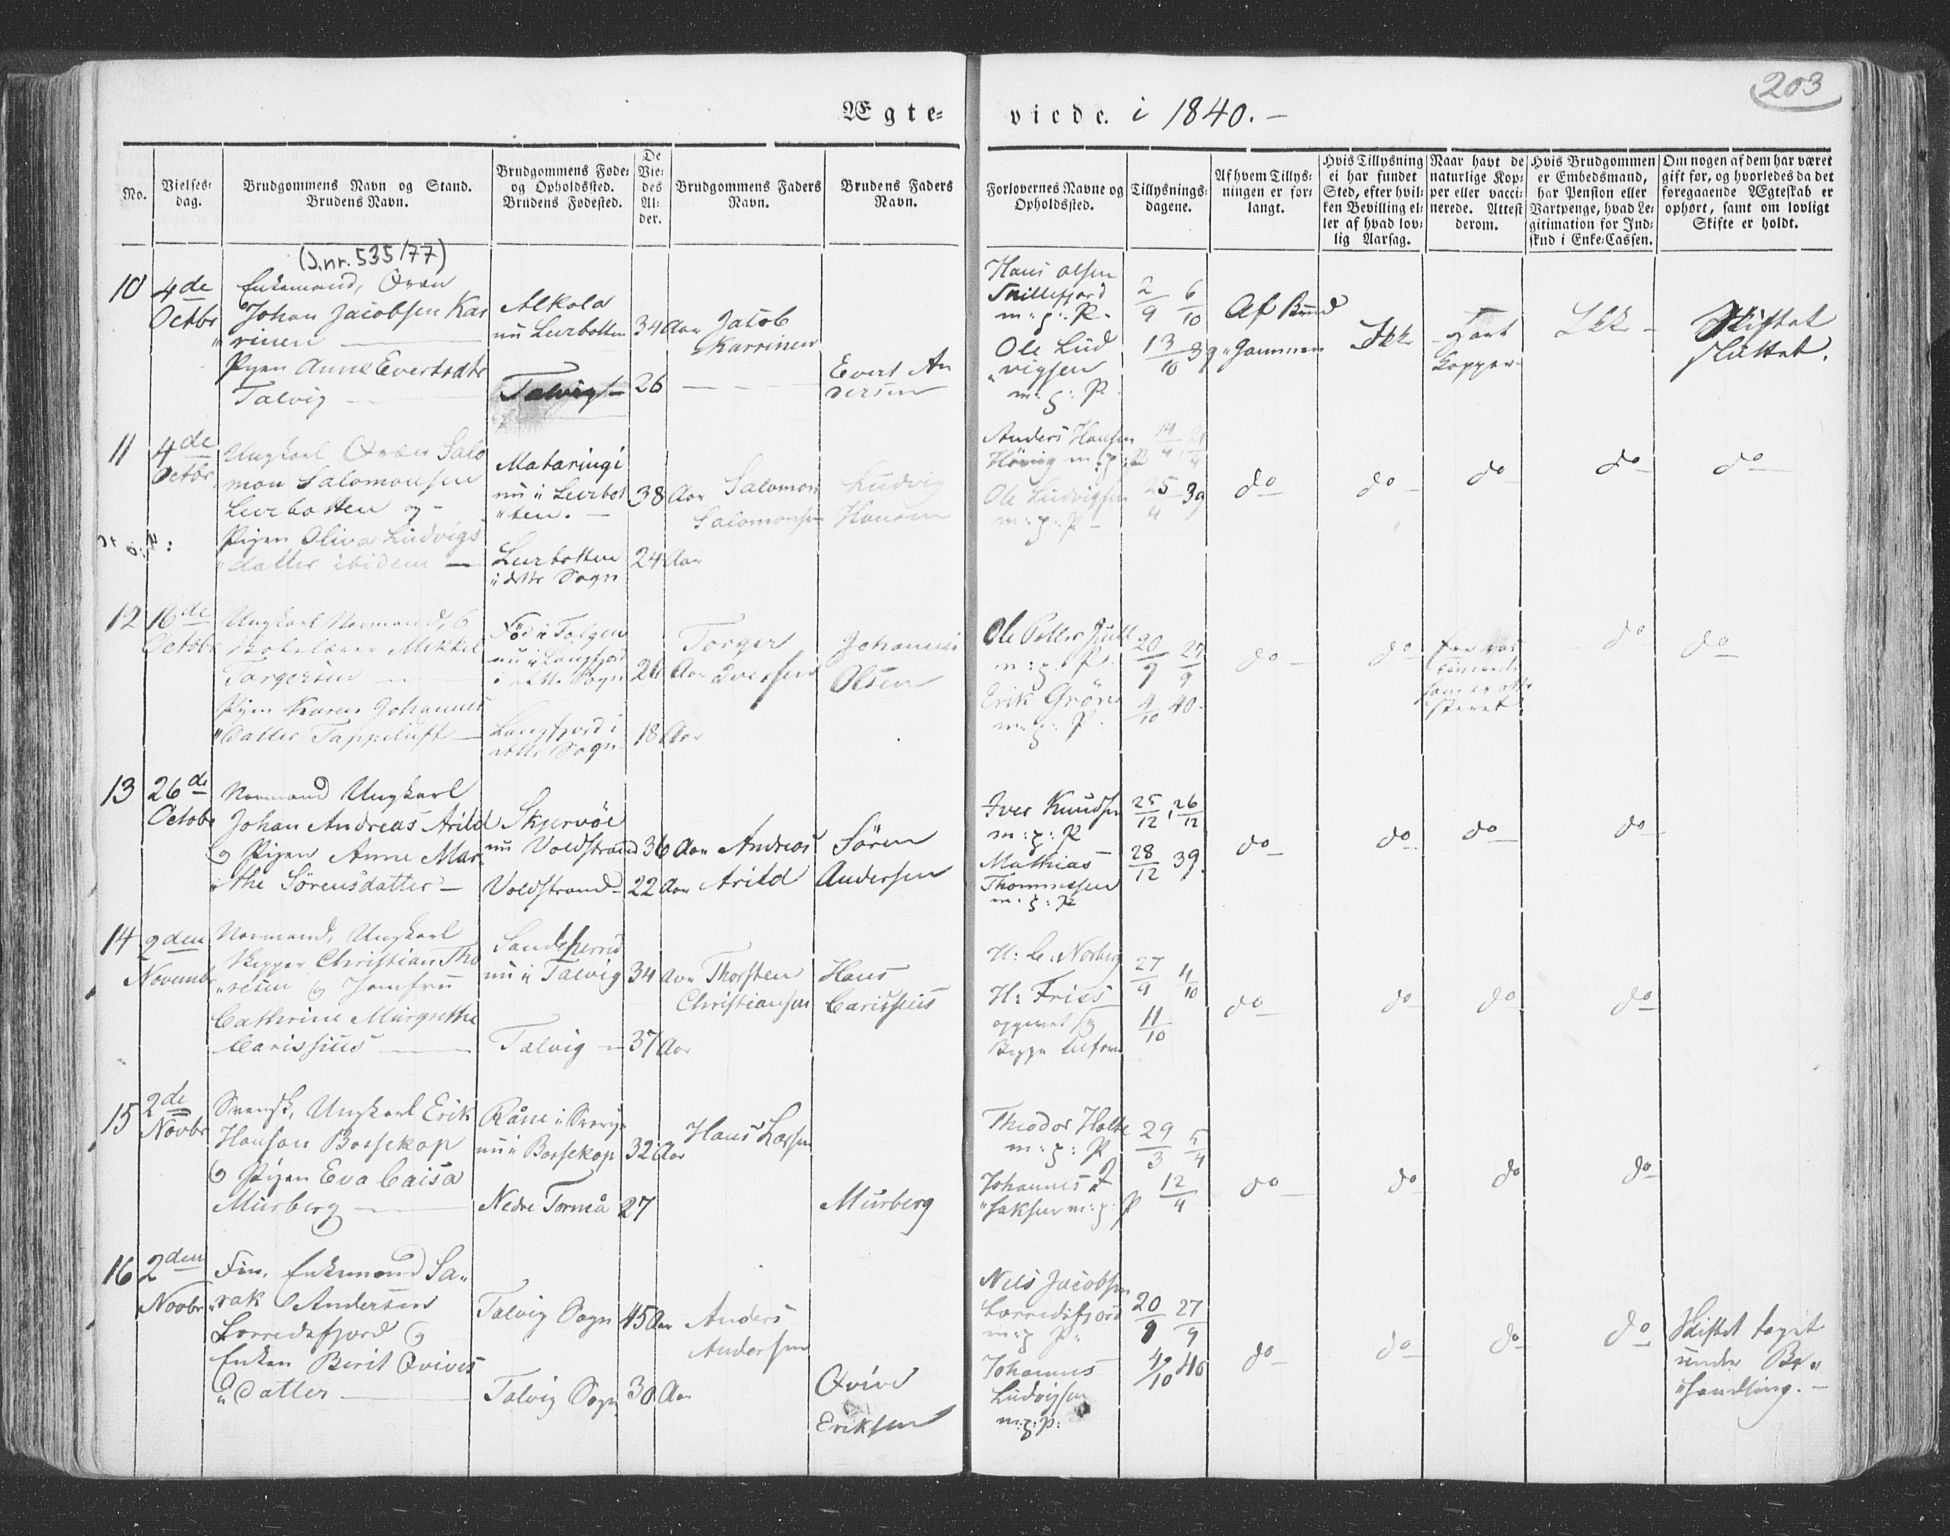 203
Ægte-
viede. i 1840. -
No.
Vielses-
dag.
Brudgommens Navn og Stand.
Brudens Navn.
Brudgommens Føde-
og Opholdssted.
Brudens Fødested.
De
Vie-
des
Al-
der.
Brudgommens Faders
Navn.
Brudens Faders
Navn.
Forlovernes Navne og
Opholdssted.
Tillysnings-
dagene.
Af hvem Tillys-
ningen er for-
langt.
Hvis Tillysning
ei har fundet
Sted, efter hvil-
ken Bevilling el-
ler af hvad lov-
lig Aarsag.
Naar havt de
naturlige Kop-
per eller vacci-
nerede. Attest
derom.
Hvis Brudgommen
er Embedsmand,
har Pension eller
Vartpenge, hvad Le-
gitimation for Ind-
skud i Enke-Cassen.
Om nogen af dem har været
gift før, og hvorledes da det
foregaaende Ægteskab er
ophørt, samt om lovligt
Skifte er holdt.
(J.nr. 535/77)
10
4de
Octbr
Enkemand, Qvæn
Johan Jacobsen Kar
rinen
Pigen Anne Evertsdtr
Talvig
Alkola
nu Leerbotten
Talvig
34 Aar
26
Jacob
Karrinen
Evert An
dersen
Hans Olsen
m: p: P.
Ole Lud
vigsen
m: p: P.
2/9 6/10
13/10 39
Af Brud
Gommen
Ikke
Havt
Kopper
Ikke
Skiftet
sluttet.
11
4de
Octbr
Ungkarl Qvæn Salo
mon Salomonsen
Leerbotten og
Pigen Oliva Ludvigs
datter ibidem
Mataringi
nu i Leerbot
ten.
Leerbotten
i dette Sogn
38 Aar
24 Aar
Salomon
Salomonsen
Ludvig
Hansen
Anders Hansen
m: p: P
Ole Ludvigsen
m: p: P
14/4 21/4
25/4 39
do
do
do
do
do
12
16de
Octobr
Ungkarl Normand, 
Skolelærer Mikkel
Torgersen
Pigen Karen Johannes
datter Tappeluft
Fød i Tolgen
nu i Langfjord
i dette Sogn
Langfjord i
dette Sogn
26 Aar
18 Aar
Torger
Iversen
Johannes
Olsen
Ole Petter Juul
m: p: P.
Erik Grøn
m: p: P.
20/9 27/9
4/10 40.
do
do
do
do
13
26de
Octobr
Normand Ungkarl
Johan Andreas Arild
og Pigen Anne Mar
the Sørensdatter
Skjervöe
nu Voldstrand
Voldstrand
36 Aar
22 Aar
Andreas
Arild
Sören
Andersen
Iver Knudsen
m: p: P
Mathias
Thommesen
m: p: P
25/12, 26/12
28/12 39.
do
do
do
do
14
2den
Novembr
Normand, Ungkarl
Skipper Christian Tho
resen og Jomfru
Cathrine Margrethe
Carissius
Sandsherred
nu i Talvig
Talvig
34 Aar
37 Aar
Thorsten
Christiansen
Hans
Carissius
H: C: Norberg
H: Friis
27/9 4/10
11/10
do
do
do
do
15
2de
Novbr
Svensk, Ungkarl Erik
Hansen Bossekop
og Pigen Eva Caisa
Murberg
Råne i Sverig
nu i Bossekop
Nedre Tornå
32 Aar
27
Hans Larsen
Murberg
Theodor Holte
m: p: P
Johannes I
saksen m: p: P
29/3 5/4
12/4
do
do
do
do
16
2den
Novbr
Fin, Enkemand Sa-
rak Andersen
Lerredsfjord og
Enken Berit Qvives
datter
Talvig Sogn
Talvig Sogn
45 Aar
30 Aar
Anders
Andersen
Qvive
Eriksen
Nils Jacobsen
Lerredsfjord
m: p: P:
Johannes
Ludvigsen
m: p: P:
20/9 27/9
4/10 40
do
do
do
do
Skiftet taget
under Be-
handling. -